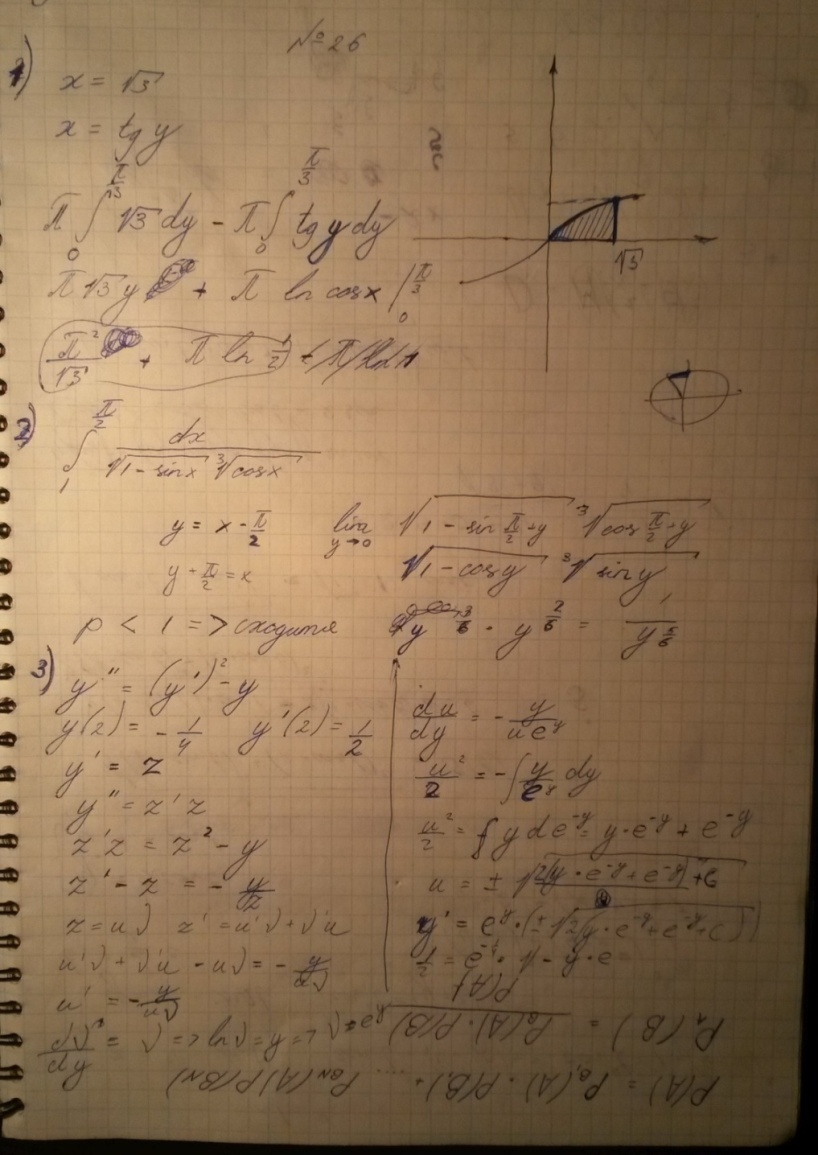 №26
1) x = √3
x = tg y
π ∫₀^{π/3} √3 dy − π ∫₀^{π/3} tg y dy
π √3 y + π ln cos x |₀^{π/3}
π²/√3 + π ln 1/2
√3
2) ∫₁^{π/2} dx / (√(1−sin x) ∛(cos x))
y = x − π/2
y + π/2 = x
lim y→0 √(1 − sin π/2 + y) ∛(cos π/2 + y)
√(1 − cos y) ∛(sin y)
p < 1 => сходится
y^{3/6} · y^{2/6} = 1/y^{5/6}
3) y'' = (y')² − y
y(2) = −1/4 y'(2) = 1/2
y' = z
y'' = z' z
z'z = z² − y
z' − z = −y/z
z = uv z' = u'v + v'u
u'v + v'u − uv = −y/uv
u' = −y/uv
dv/dy = v => ln v = y => v = e^y
du/dy = −y/(u e^y)
u²/2 = −∫ y/e^y dy
u²/2 = ∫ y de^{−y} = y·e^{−y} + e^{−y}
u = ± √(2(y·e^{−y} + e^{−y}) + C
y' = e^y · (± √(2(y·e^{−y} + e^{−y} + C)))
P(A) = P_{B₁}(A) · P(B₁) + .... P_{BN}(A) P(BN)
P_A(B) = P_B(A) · P(B) / P(A)